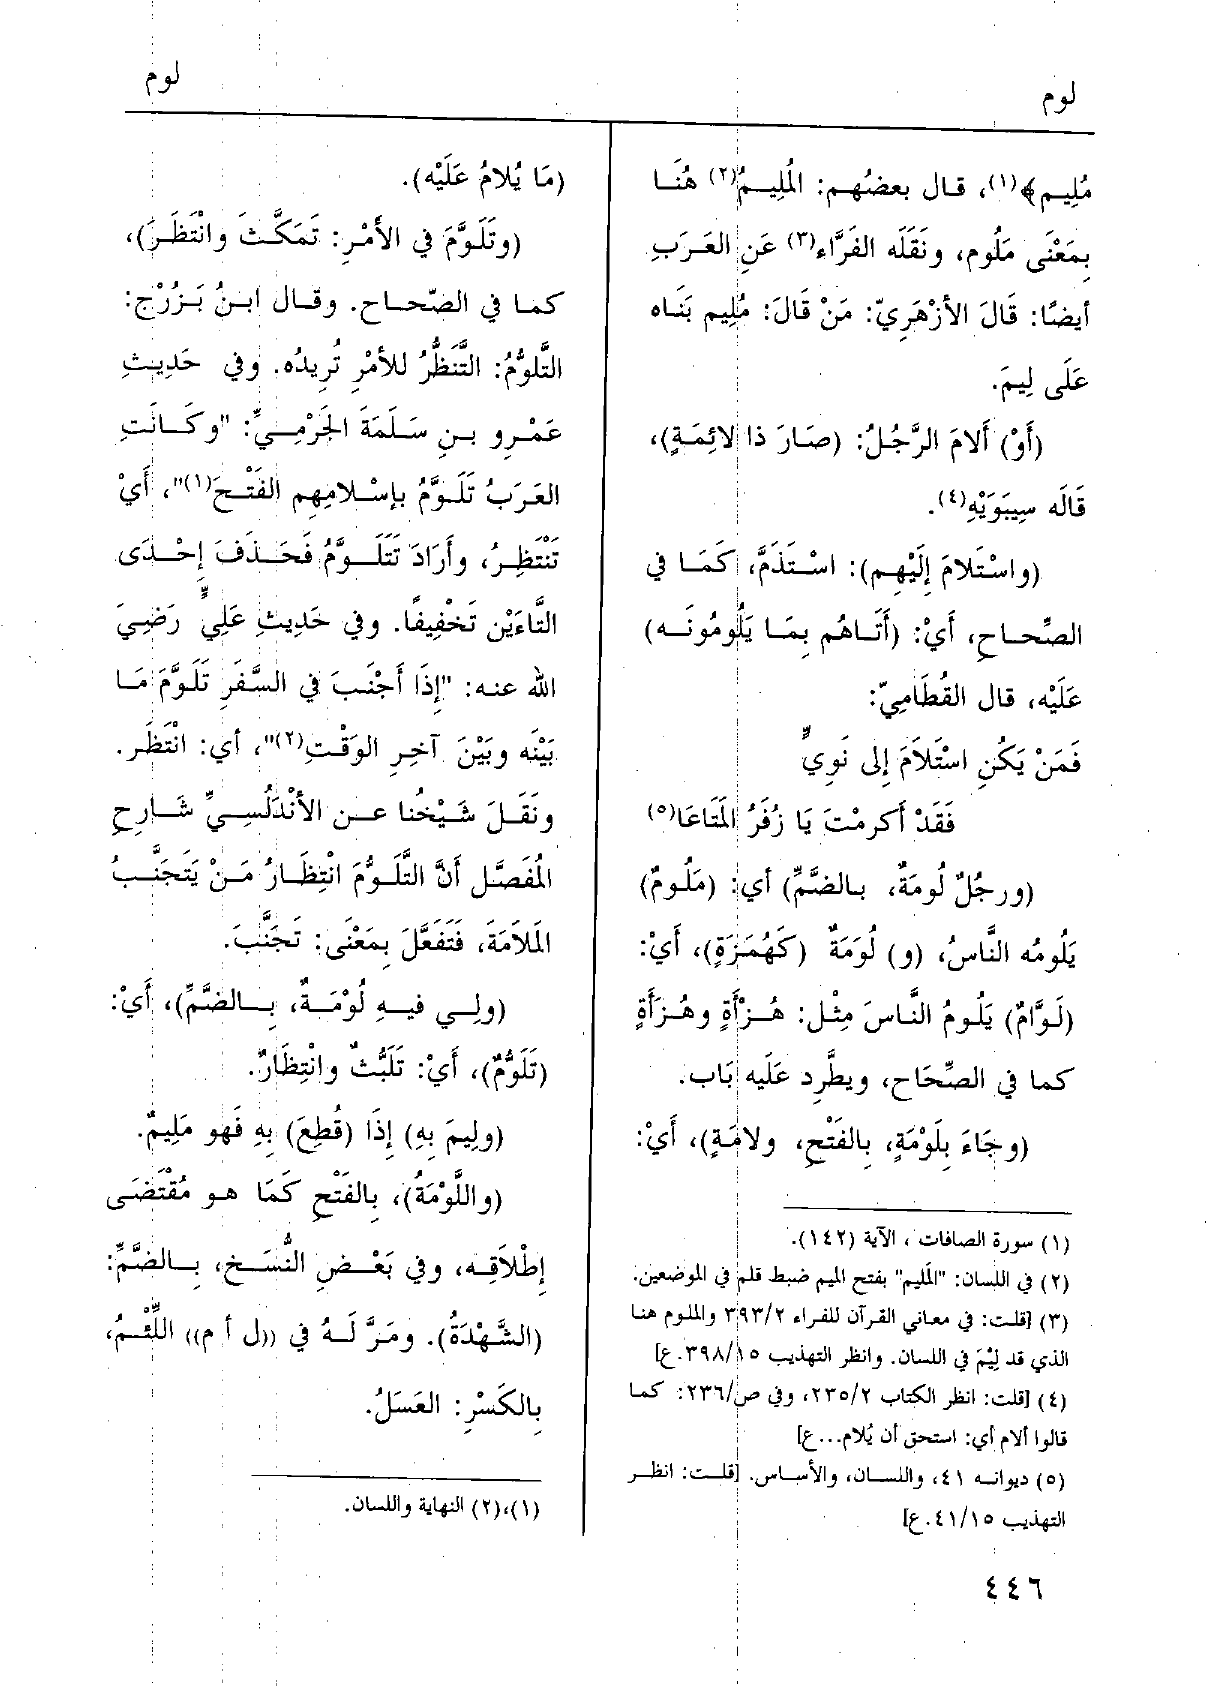 لوم
لوم
مُلِيم﴾(١)، قال بعضُهم: المُلِيمُ(٢) هُنَا
بِمَعْنَى مَلُوم، ونَقَلَه الفَرَّاء(٣) عَنِ العَرَبِ
أيضًا: قَالَ الأزْهَرِيّ: مَنْ قَالَ: مُلِيم بَنَاه
عَلَى لِيمَ.
(أَوْ) أَلامَ الرَّجُلُ: (صَارَ ذا لائِمَةٍ)،
قَالَه سِيبَوَيْهِ(٤).
(واسْتَلامَ إِلَيْهِم): اسْتَذَمَّ، كَمَا في
الصِّحاحِ، أَيْ: (أَتَاهُم بِمَا يَلُومُونَه)
عَلَيْه، قال القُطَامِيّ:
فَمَنْ يَكُنِ اسْتَلَامَ إِلى نَوِيٍّ
فَقَدْ أَكرمْتَ يَا زُفَرُ المَتَاعَا(٥)
(ورجُلٌ لُومَةٌ، بالضَّمِّ) أي: (مَلُومٌ)
يَلُومُه النَّاسُ، (و) لُوَمَةٌ (كَهُمَزَةٍ)، أَيْ:
(لَوَّامٌ) يَلُومُ النَّاسَ مِثْل: هُزْأَةٍ وهُزَأَةٍ
كما في الصِّحَاح، ويطَّرِد عَلَيه بَاب.
(وجَاءَ بِلَوْمَةٍ، بِالفَتْحِ، ولامَةٍ)، أَيْ:
(١) سورة الصافات ، الآية (١٤٢).
(٢) في اللسان: "المَليم" بفتح الميم ضبط قلم في الموضعين.
(٣) [قلت: في معاني القرآن للفراء ٣٩٣/٢ والملوم هنا
الذي قد لِيْمَ في اللسان. وانظر التهذيب ٣٩٨/١٥.ع]
(٤) [قلت: انظر الكتاب ٢٣٥/٢، وفي ص/٢٣٦: كما
قالوا ألام أي: استحق أن يُلام...ع]
(٥) ديوانه ٤١، واللسان، والأساس. [قلت: انظر
التهذيب ٤١/١٥.ع]
(مَا يُلامُ عَلَيْه).
(وتَلَوَّمَ في الأمْرِ: تَمَكَّثَ وانْتَظَرَ)،
كما في الصّحاح. وقال ابنُ بَزُرْج:
التَّلوُّمُ: التَّنَظُّرُ للأمْرِ تُرِيدُه. وفي حَدِيثِ
عَمْرِو بنِ سَلَمَةَ الجَرْمِيِّ: "وكَانَتِ
العَرَبُ تَلَوَّمُ بإسْلامِهِم الفَتْحَ(١)"، أَيْ
تَنْتَظِرُ، وأَرَادَ تَتَلَوَّمُ فَحَذَفَ إِحْدَى
التَّاءَيْن تَخْفِيفًا. وفي حَدِيثِ عَلِيٍّ رَضِيَ
الله عنه: "إِذَا أَجْنَبَ في السَّفَرِ تَلَوَّمَ مَا
بَيْنَه وبَيْنَ آخِرِ الوَقْتِ(٢)"، أي: انْتَظَر.
ونَقَلَ شَيْخُنا عن الأنْدَلُسِيِّ شَارِحِ
المُفَصَّل أَنَّ التَّلَوُّمَ انْتِظَارُ مَنْ يَتَجَنَّبُ
المَلامَةَ، فَتَفَعَّلَ بِمَعْنَى: تَجَنَّبَ.
(ولِي فيهِ لُوْمَةٌ، بالضَّمِّ)، أَيْ:
(تَلَوُّمٌ)، أَيْ: تَلَبُّثٌ وانْتِظَارٌ.
(ولِيمَ بِهِ) إِذَا (قُطِعَ) بِهِ فَهو مَلِيمٌ.
(واللَّوْمَةُ)، بِالفَتْحِ كَمَا هو مُقْتَضَى
إِطْلَاقِه، وفي بَعْضِ النُّسَخِ، بِالضَّمِّ:
(الشَّهْدَةُ). ومَرَّ لَهُ في ((ل أ م)) اللِّئْمُ،
بِالكَسْرِ: العَسَلُ.
(١)،(٢) النهاية واللسان.
٤٤٦